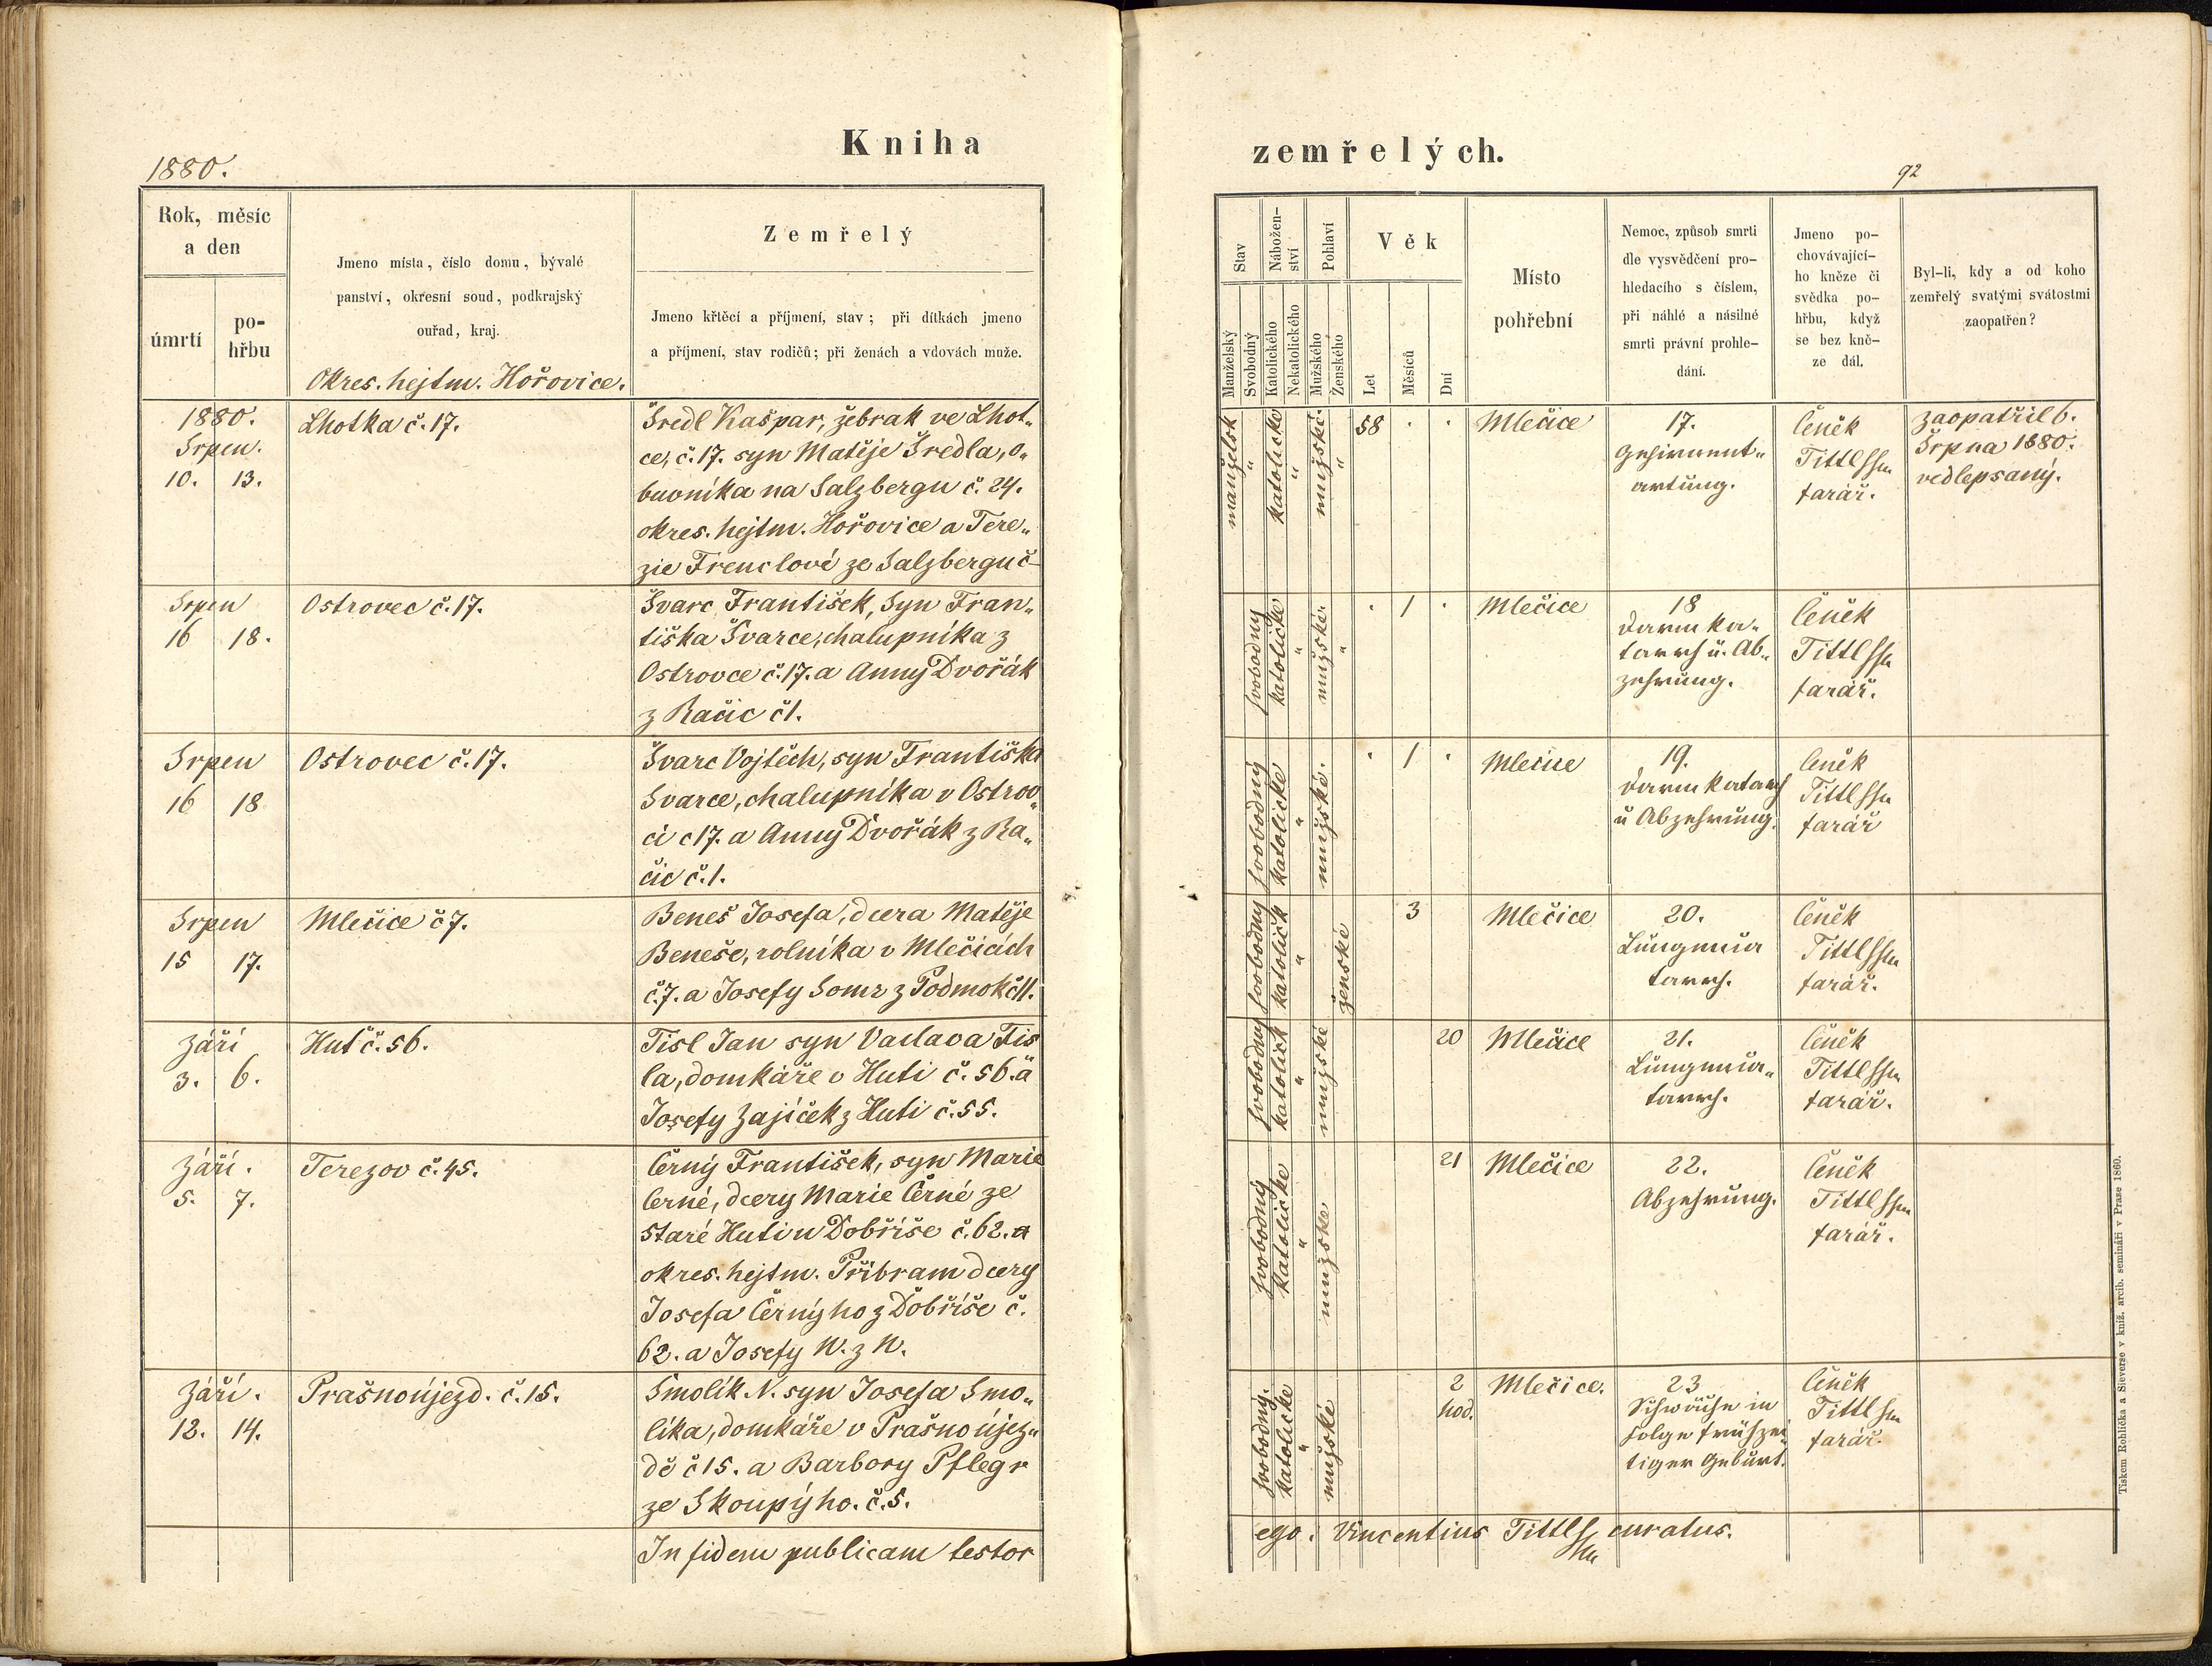 Kniha
1880.
Rok, měsíc
a den
úmrtí
po-
hřbu
Jmeno místa, číslo domu, bývalé
panství, okresní soud, podkrajský
ouřad, kraj.
Okres. hejtm. Hořovice.
Zemřelý
Jmeno křtěcí a příjmení, stav; při dítkách jmeno
a příjmení, stav rodičů; při ženách a vdovách muže.
1880.
Srpen.
10. 13.
Lhotka č. 17.
Šredl Kašpar, žebrak ve Lhot„
ce, č. 17. syn Matěje Šredla, o„
buvníka na Salzbergu č. 24.
okres. hejtm. Hořovice a Tere„
zie Frenclové ze Salzbergu č
Srpen
16 18.
Ostrovec č. 17.
Švarc František, syn Fran„
tiška Švarce, chalupníka z
Ostrovce č. 17. a Anny Dvořák
z Račic č 1.
Srpen
16 18
Ostrovec č. 17.
Švarc Vojtěch, syn Františka
Svarce, chalupníka v Ostrov„
ci c 17. a Anny Dvořák z Ra„
čic č. 1.
Srpen
15 17.
Mlečice č 7.
Beneš Josefa, dcera Matěje
Beneše, rolníka v Mlečicích
č. 7. a Josefy Somr z Podmok č 11.
Září
3. 6.
Huť č. 56.
Tisl Jan syn Vaclava Tis
la, domkáře v Huti č. 56. a
Josefy Zajíček z Huti č. 55.
Září.
5. 7.
Terezov č. 45.
Černý František, syn Marie
Černé, dcery Marie Černé ze
Staré Huti u Dobříše č. 62. a
okres. hejtm. Příbram dcery
Josefa Černýho z Dobříše č.
62. a Josefy N. z N.
Září.
12. 14.
Prašnoújezd. č. 15.
Smolík N. syn Josefa Smo„
líka, domkáře v Prašnoújez„
dě č 15. a Barbory Pflegr
ze Skoupýho. č. 5.
In fidem publicam testor
zemřelých.
92
Stav
Nábožen-
ství
Pohlaví
Věk
Manželský
Svobodný
Katolického
Nekatolického
Mužského
Ženského
Let
Měsíců
Dní
Místo
pohřební
Nemoc, způsob smrti
dle vysvědčení pro-
hledacího s číslem,
při náhlé a násilné
smrti právní prohle-
dání.
Jmeno po-
chovávající-
ho kněze či
svědka po-
hřbu, když
se bez kně-
ze dál.
Byl-li, kdy a od koho
zemřelý svatými svátostmi
zaopatřen?
manželsk
katolické
mužské.
58 . .
Mlečice
17.
Gehirnent„
artung.
Čeněk
Tittl
farář.
Zaopatřil 6.
Srpna 1880.
vedlepsaný.
svobodný
katolické
mužské.
. 1 .
Mlečice
18
Darmka„
tarrh u. Ab„
zehrung.
Čeněk
Tittl
farář.
svobodný
katolické
mužské.
. 1 .
Mlečice
19.
Darmkatarrh
u Abzehrung.
Čeněk
Tittl
farář
svobodný
katolick
ženské
3
Mlečice
20.
Lungenka
tarrh.
Čeněk
Tittl
farář.
svobodný
katolick
mužské
20
Mlečice
21.
Lungenka„
tarrh.
Čeněk
Tittl
farář.
svobodný
katolické
mužské
21
Mlečice
22.
Abzehrung.
Čeněk
Tittl
farář.
svobodný.
katolické
mužské
2
hod.
Mlečice.
23
Schwäche in
folge frühzei„
tiger Geburt.
Čeněk
Tittl
farář.
ego: Vincentius Tittl curatus.
Tiskem Rohlíčka a Sieverse v kníž. arcib. semináři v Praze 1860.